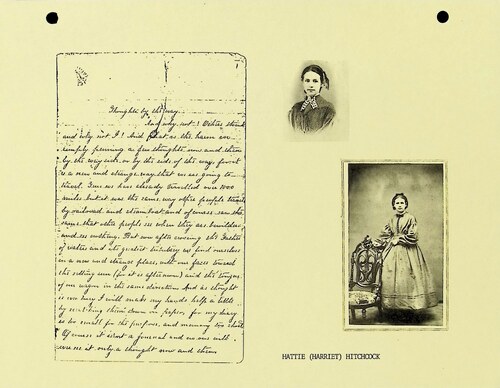 Thoughts by the way.
And why not? Others think
and why not I? And what is the harm in
simply penning a few thoughts now and then
by the way side, or by the side of the way, for it
is a new and strange way that we are going to
travel. True we have already travelled over 1000
miles but it was the same way other people travel
by railroad and steamboat, and of course saw the
same that other people see when they are
and But now after crossing the Father
of waters and its greatest tributary we find ourselves
in a new and strange place, with our faces toward
the setting sun (for it is afternoon) and the tongue
of our wagon in the same direction And as thought
is now busy I will make my hands help a little
by them down on paper, for my diary
is too small for the purpose, and memory too short
Of course it isn't a journal and no one will
ever see it, only a thought now and then
HATTIE (HARRIET) HITCHCOCK